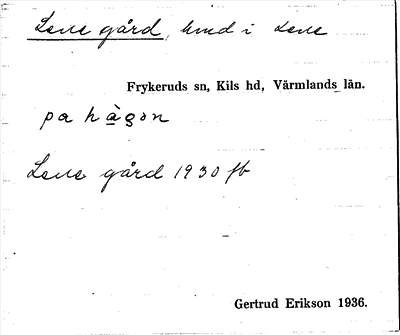 Lene gård, hmd i Lene
Frykeruds sn, Kils hd, Värmlands län.
pa hàgɔn
Lene gård 1930 fb
Gertrud Erikson 1936.